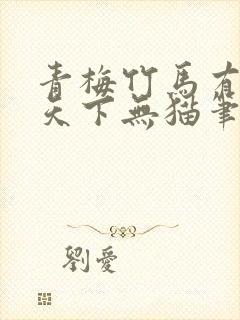 青梅竹馬有
天下無猫筆
劉愛